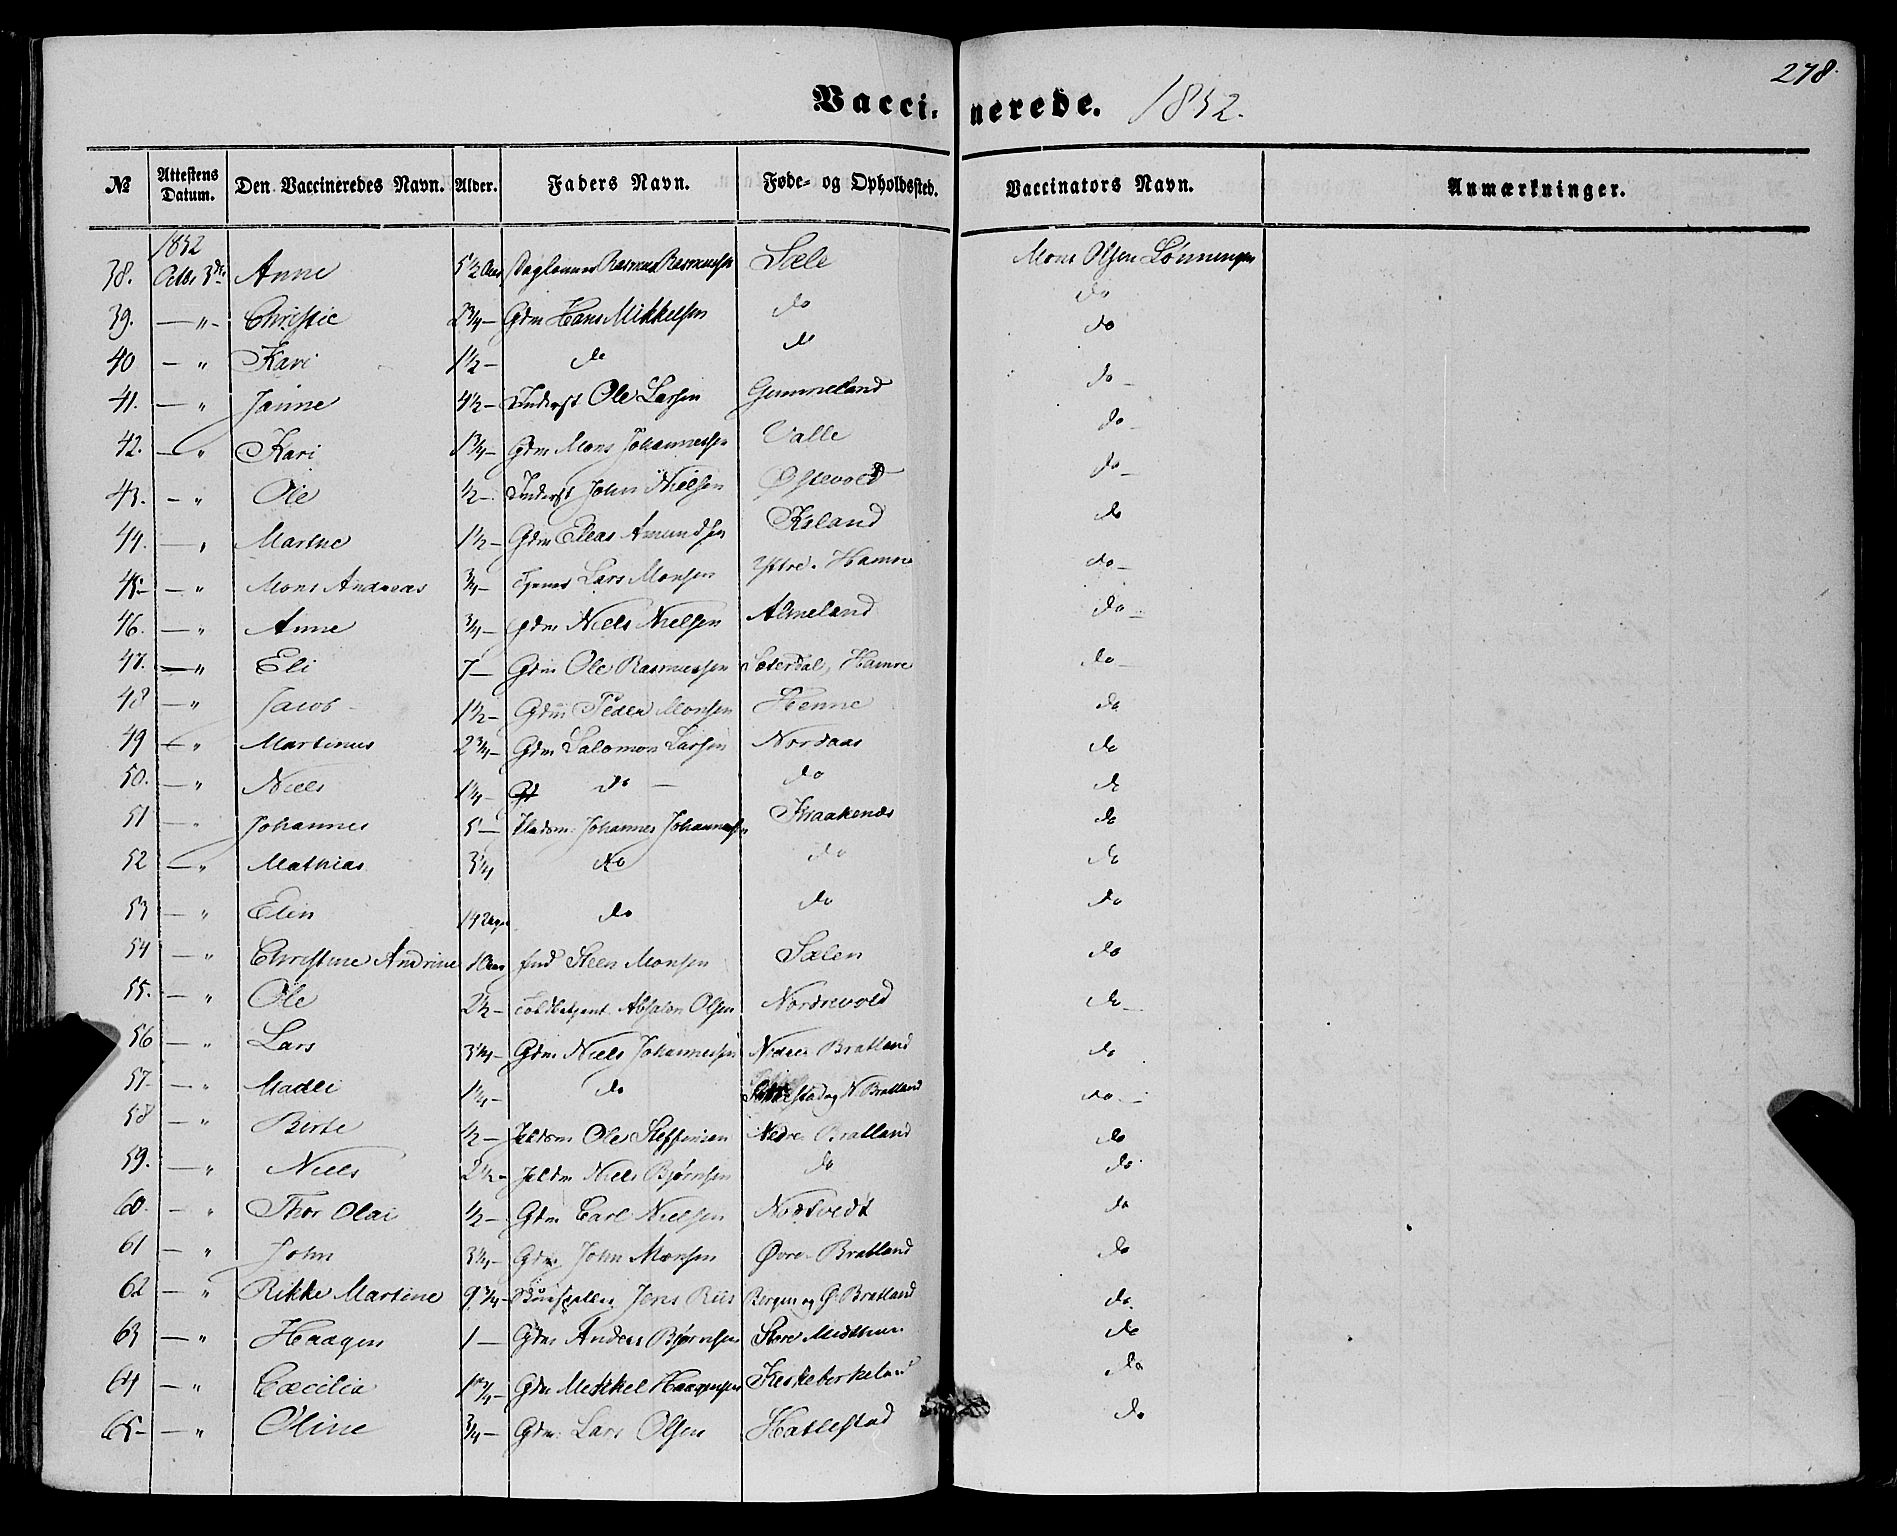 278.
Vaccinerede. 1852.
№ Attestens Datum. Den Vaccineredes Navn. Alder. Faders Navn. Føde- og Opholdssted. Vaccinators Navn. Anmærkninger.
1852
38. Octbr 3die Anne 5½ Aar Daglønner Rasmus Rasmussen Sæle Mons Olsen Lønningen
39. — " - Christie 2¾ — Gdm Hans Mikkelsen do do
40 — " Kari 1½ — do do do
41. — " Janne 4½ — Inderst Ole Larsen Gammeland do —
42. — " Kari 1¾ — Gdm Mons Johannessen Valle do —
43. — " Ole ½ — Inderst John Nielsen Østevold do —
44. — " Marthe 1½ — Gdm Elias Amundsen Keland do
45 — " Mons Andreas ¾ — Lars Monsen Yttre Hamre do —
46. — " Anne ¾ — Gdm Niels Nielsen Almeland do —
47. — " Eli 7 — Gdm Ole Rasmussen Sæterdal, Hamre do —
48 — " Jacob 1½ — Gdm Peder Monsen Henne do
49 — " Martinus 2¾ — Gdm Salomon Larsen Nordaas do
50. — " Niels 1¼ — do — do do
51 " Johannes 5 — Pladsm: Johannes Johannessen Kraakenæs do
52 — " Mathias 3¼ do do do
53 — " Elin 14 Uger do do do
54 — " Christine Andrine 1 Aar Ind Steen Monsen Sælen do
55. — " Ole 2½ — Absalon Olsen Nordrevold do —
56 — " Lars 3¼ — Gdm Niels Johannessen Nedre Bratland do
57 — " Madli 1¼ — do N. Bratland do —
58 — " Birte ½ — Ole Steffensen Nedre Bratland do
59. — " Niels 2½ — Niels Bjørnsen do do
60. — " Thor Olai ½ — Gdm Carl Nielsen Nodtvedt do
61 — " John 3¼ — Gdm John Monsen Øvre Bratland do
62 — " Rikke Martine 9¾ — Jens Riis Bergen og Ø. Bratland do.
63 — " Haagen 1 — Gdm Anders Bjørnsen Store Midthun do
64 — " Cæcilia 1¾ — Gdm Mikkel Haagensen Kirkebirkeland do
65 — " Oline ¾ — Gdm: Lars Olsen Hatlestad do